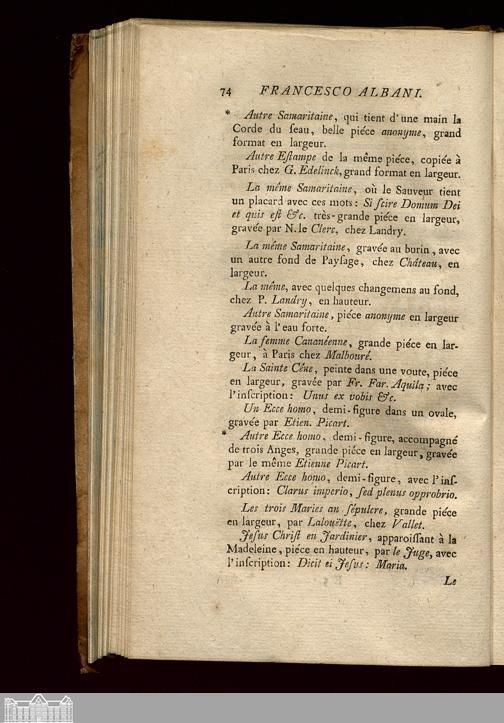 74 FRANCESCO ALBANI.
* Autre Samaritaine, qui tient d'une main la
Corde du ſeau, belle piéce anonyme, grand
format en largeur.
Autre Eſtampe de la même piéce, copiée à
Paris chez G. Edelinck, grand format en largeur.
La même Samaritaine, où le Sauveur tient
un placard avec ces mots: Si ſcire Domum Dei
et quis eſt &c. très-grande piéce en largeur,
gravée par N. le Clerc, chez Landry.
La même Samaritaine, gravée au burin, avec
un autre fond de Payſage, chez Cháteau, en
largeur.
La même, avec quelques changemens au fond,
chez P. Landry, en hauteur.
Autre Samaritaine, piéce anonyme en largeur
gravée à l'eau forte.
La femme Cananéenne, grande piéce en lar-
geur, à Paris chez Malbouré.
La Sainte Céne, peinte dans une voute, piéce
en largeur, gravée par Fr. Far. Aquila; avec
l'inſcription: Unus ex vobis &c.
Un Ecce homo, demi-figure dans un ovale,
gravée par Etien. Picart.
* Autre Ecce homo, demi-figure, accompagné
de trois Anges, grande piéce en largeur, gravée
par le même Etienne Picart.
Autre Ecce homo, demi-figure, avec l'inſ-
cription: Clarus imperio, ſed plenus opprobrio.
Les trois Maries au ſépulcre, grande piéce
en largeur, par Lalouëtte, chez Vallet.
Jeſus Chriſt en Jardinier, apparoiſſant à la
Madeleine, piéce en hauteur, par le Juge, avec
l'inſcription: Dicit ei Jeſus: Maria.
Le